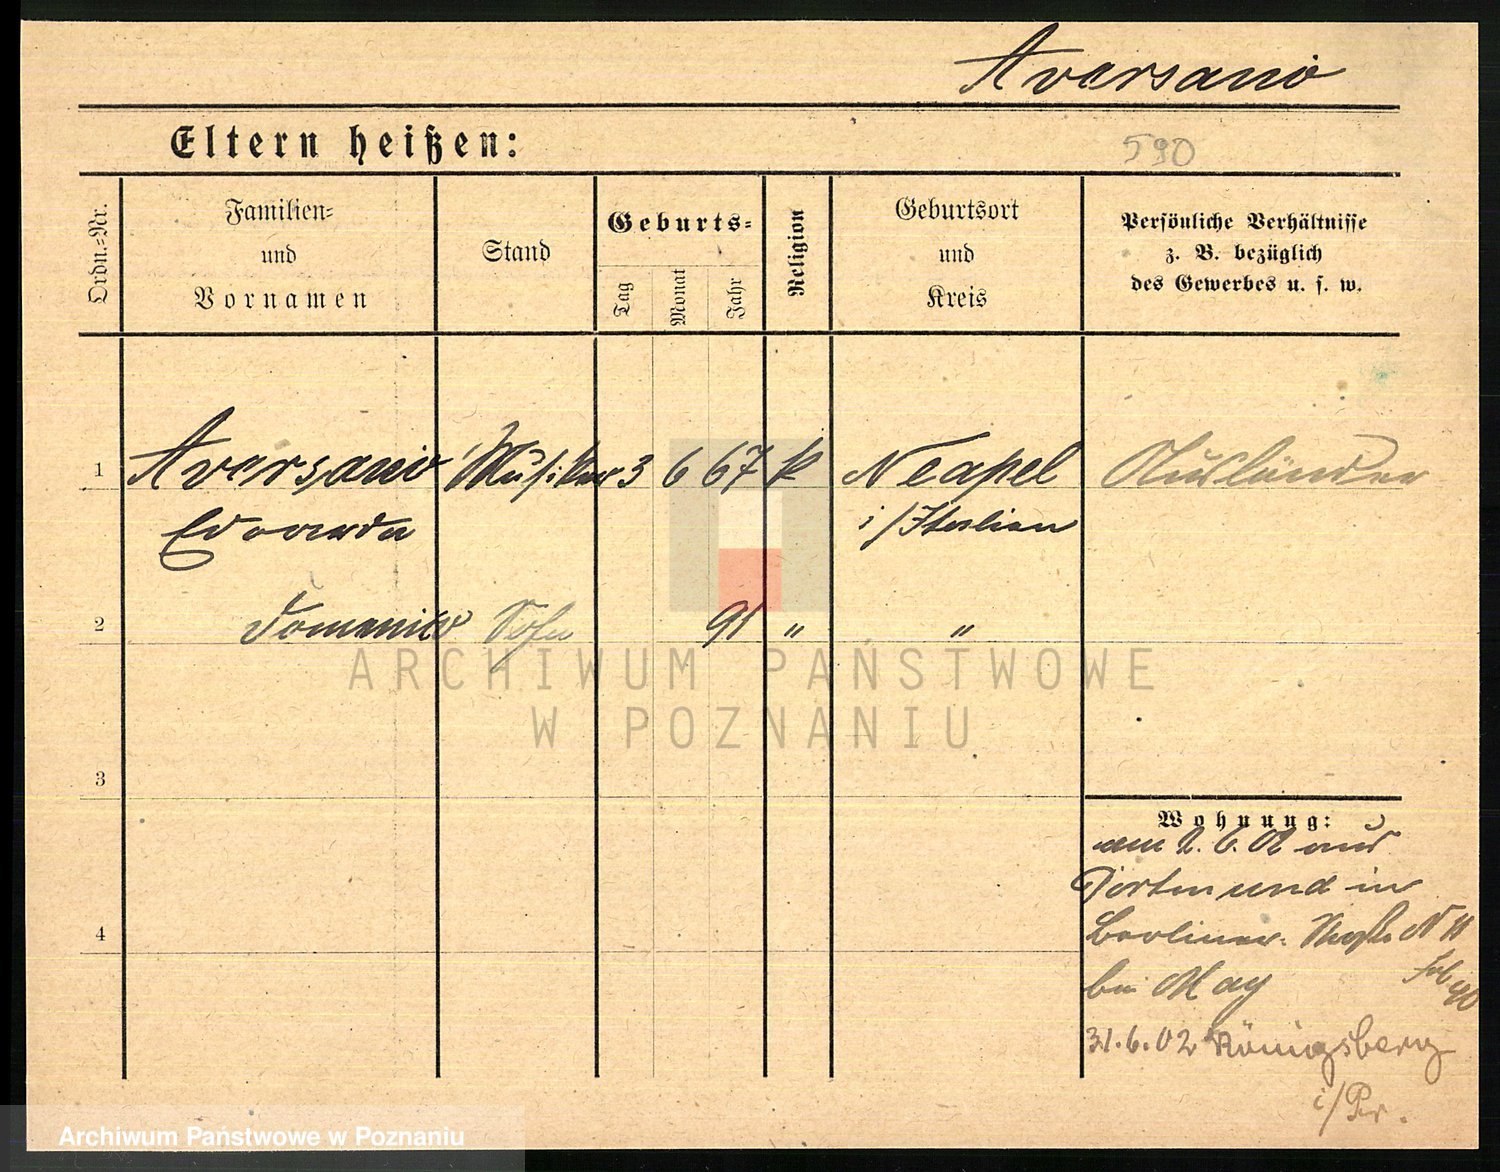 Aversano
Eltern heißen:
590
Ordn.-Nr.
Familien-
und
Vornamen
Stand
Geburts-
Tag
Monat
Jahr
Religion
Geburtsort
und
Kreis
Persönliche Verhältnisse
z. B. bezüglich
des Gewerbes u. s. w.
1 Aversano Musiker 3 6 67 k Neapel Ausländer
Edoardo i/Italien
2 Domenico Sohn 91 " "
ARCHIWUM PAŃSTWOWE
W POZNANIU
3
Wohnung:
am 2. 6. 02 aus
Dortmund in
4 Berliner
bei May
31.6.02 Königsberg
i/Pr.
Archiwum Państwowe w Poznaniu